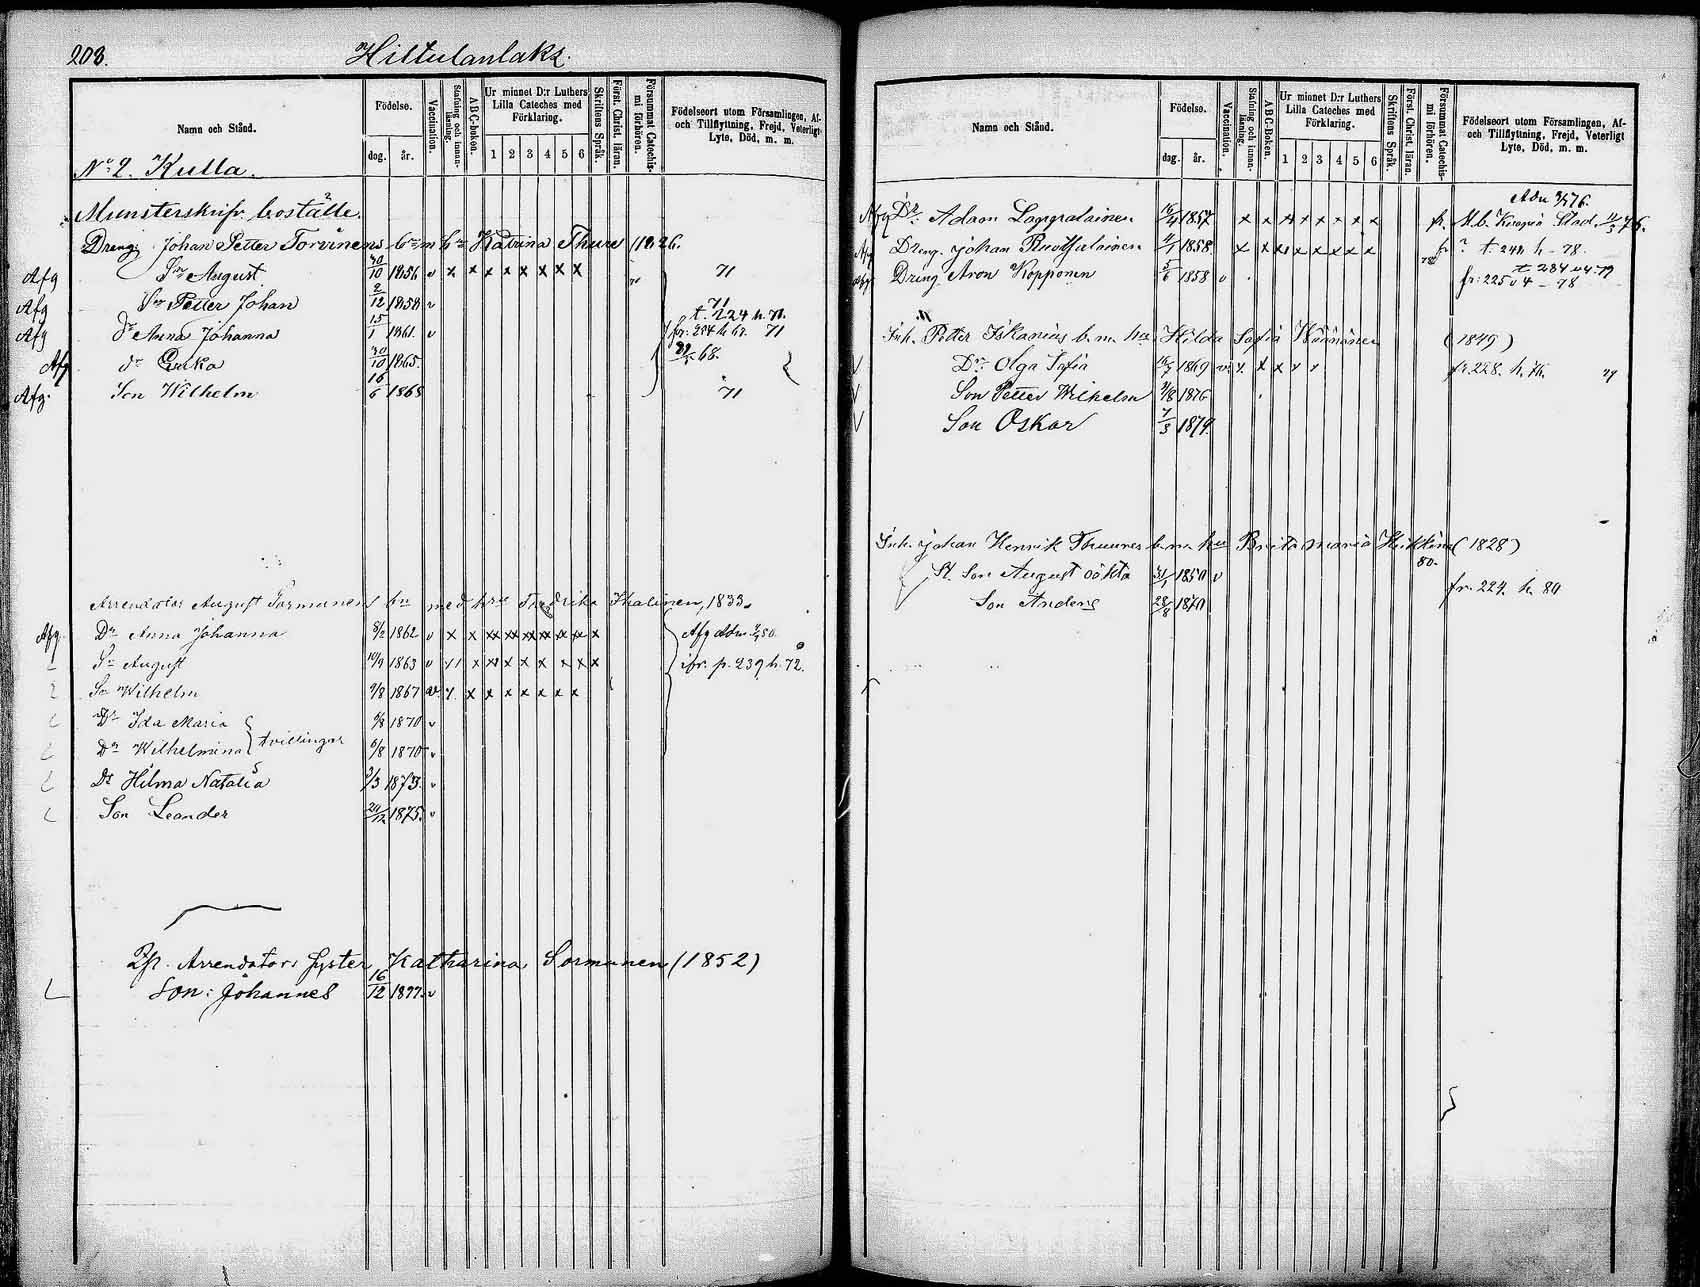 208.
Hiltulanlaks.
Namn och Stånd.
Födelse.
dag.
år.
Vaccination.
Stafning och innan-läsning.
A B C-boken.
Ur minnet D:r Luthers Lilla Cateches med Förklaring.
1 2 3 4 5 6
Skriftens Språk.
Först. Christ. läran.
Försummat Catechis-mi förhören.
Födelseort utom Församlingen, Af- och Tillflyttning, Frejd, Veterligt Lyte, Död, m. m.
No 2. Kulla.
Munsterskrifv. boställe.
Dreng. Johan Petter Torvinens b:n m h:u Katrina Thure 1826.
Afg Sn August 30/10 1856 v x x x x x x x x 71
Afg Sn Petter Johan 2/12 1858 v 71 t. 224 h. 71.
Afg Dr Anna Johanna 15/1 1861. v fr. 224 h. 67. 71
Afg dr Erika 30/10 1865. 68.
Afg. Son Wilhelm 16/6 1868 71
Arrendator August Sormunens bn med hru Fredrika Ihalinen, 1833.
Afg. Dr Anna Johanna 8/2 1862 v x x xx xx xx xx x xx x Afg
Sn August 10/9 1863 v x x x x x x x x x ifr. p. 239 h. 72.
Sn Wilhelm 9/8 1867 v. x x x x x x x x
Dr Ida Maria 6/8 1870 v
Dr Wilhelmina 6/8 1870 v
tvillingar
Dr Hilma Natalia 2/3 1873. v
Son Leander 24/12 1875. v
Arrendators syster, Katharina Sormunen (1852)
Son: Johannes 16/12 1877. v
Namn och Stånd.
Födelse.
dag.
år.
Vaccination.
Stafning och innan-läsning.
A B C-Boken.
Ur minnet D:r Luthers Lilla Cateches med Förklaring.
1 2 3 4 5 6
Skriftens Språk.
Först. Christ. läran.
Försummat Catechis-mi förhören.
Födelseort utom Församlingen, Af- och Tillflyttning, Frejd, Veterligt Lyte, Död, m. m.
76.
Afg Dr. Adam Lappalainen 1857 x x x x x x x x fr. M.b. Kuopio Stad. 76.
Afg Dreng. Johan 1858 x x x x x x x x fr t. 242 h - 78.
Afg Dreng Aron Kopponen 5/6 1858 v 78 t 284 79
fr. 225 v 4 - 78
Inh. Petter Iskanius b. m. hu Hilda Sofia Wäänänen (1849)
Dr. Olga Sofia 1869 v. x x x x x fr. 228. h. 76. 79
Son Petter Wilhelm 9/8 1876
Son Oskar 7/3 1879.
Inh. Johan Henrik Thuures b. m. hu Brita Maria Heikkinen (1828)
80.
St. Son August oäkta 31/1 1850 v fr. 224. h. 80
Son Anders 28/8 1870